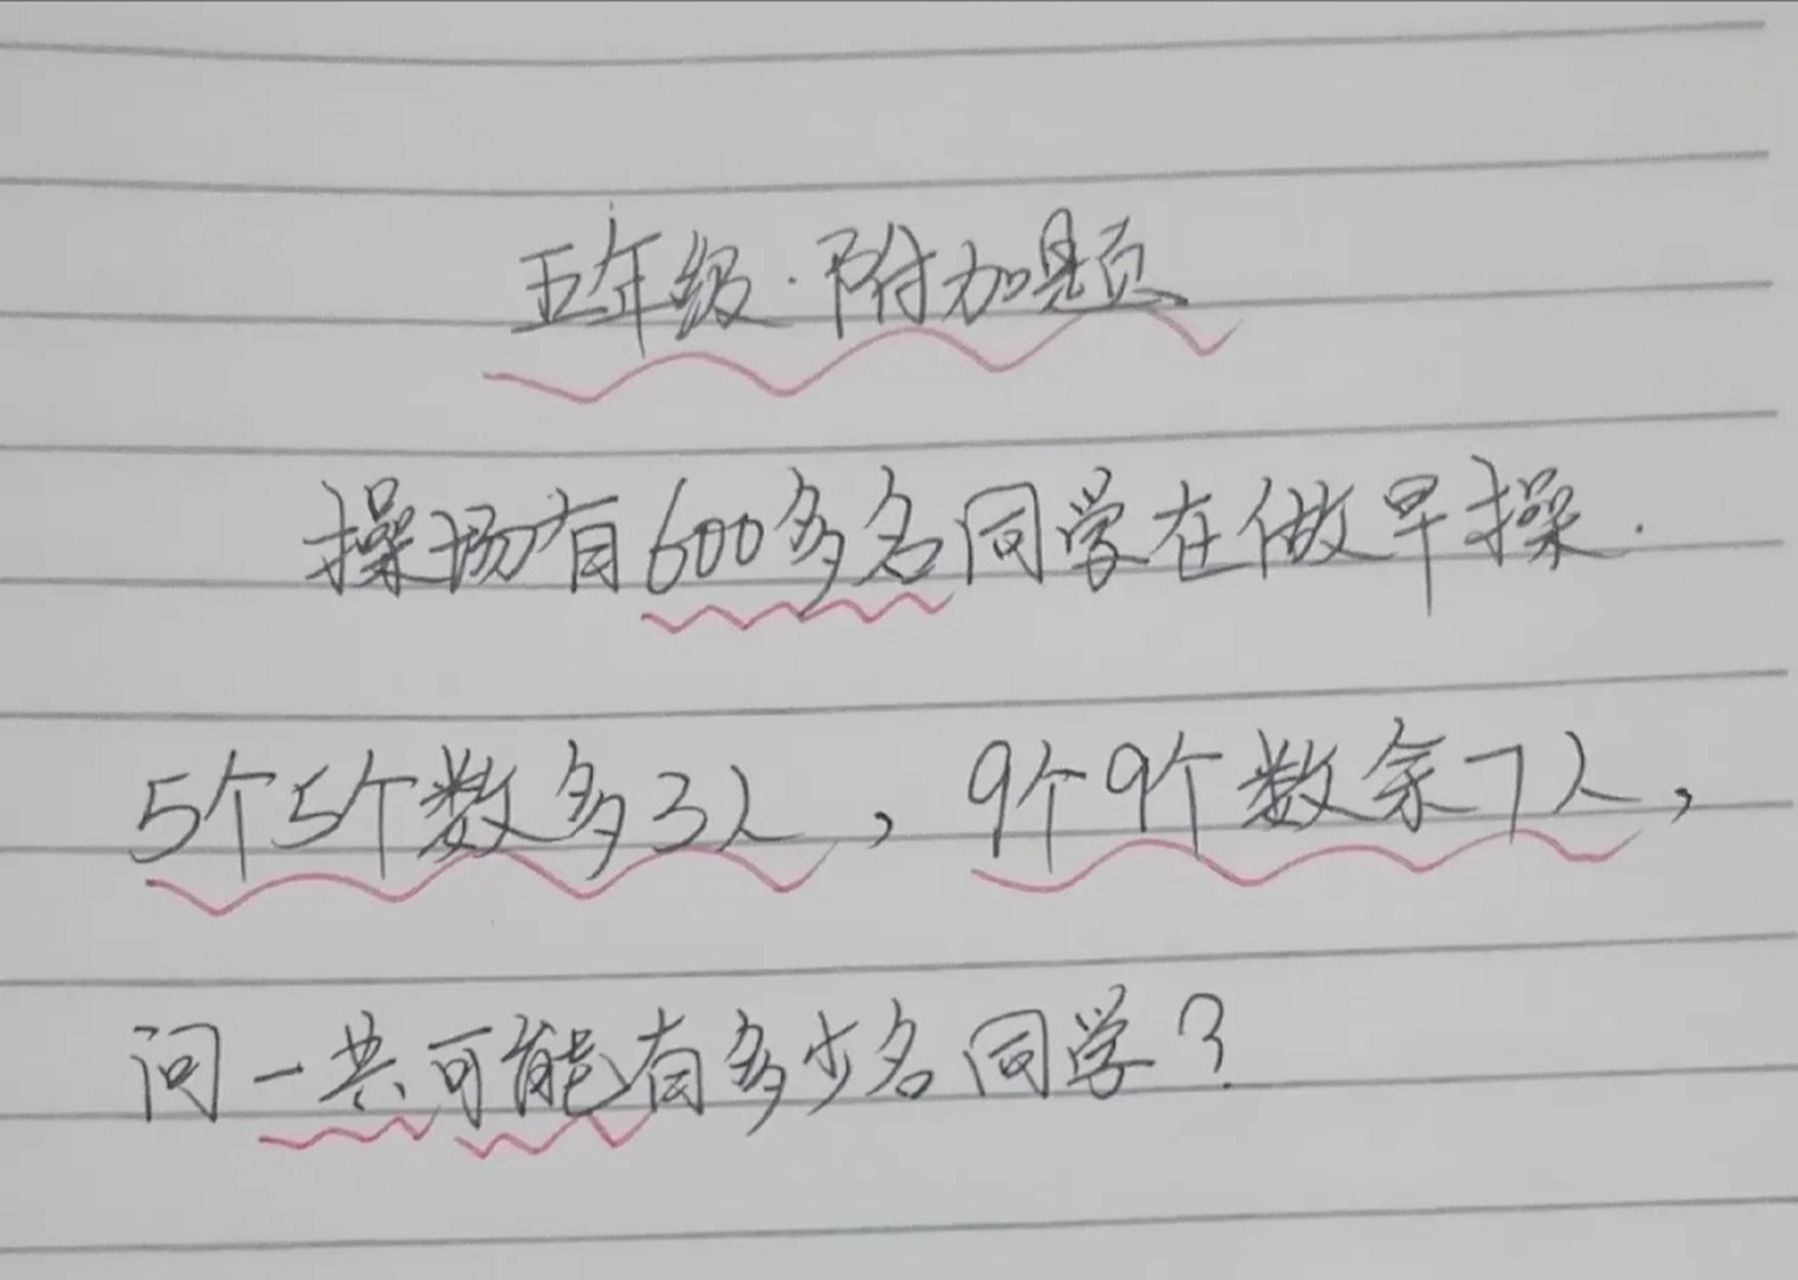 五年级·附加题
操场有600多名同学在做早操.
5个5个数多3人,9个9个数余7人,
问一共可能有多少名同学?